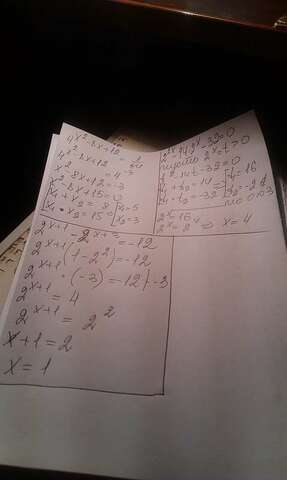 4^(x²-8x+12) = 1/64
4^(x²-8x+12) = 4^(-3)
x²-8x+12=-3
x²-8x+15=0
x₁+x₂=8 x₁=5
x₁·x₂=15 x₂=3
-14·2ˣ-32=0
пусто 2ˣ=t>0
t²-14t-32=0
t₁+t₂=14 ⇒ t₁=16
t₁·t₂=-32 t₂=-2
по ОДЗ
2ˣ=16
2ˣ=2 ⇒ x=4
2^(x+1) - 2^(x+3) =-12
2^(x+1) (1-2²)=-12
2^(x+1) · (-3) = -12 |:-3
2^(x+1) = 4
2^(x+1) = 2²
x+1=2
x=1